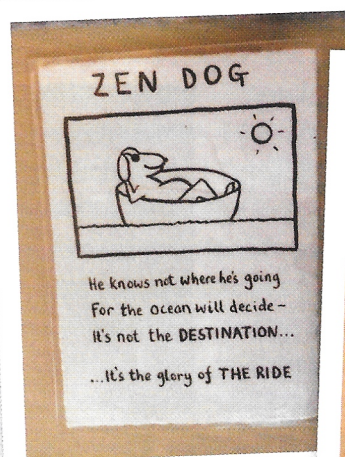 ZEN DOG
He knows not where he's going
For the ocean will decide-
It's not the DESTINATION...
...It's the glory of THE RIDE